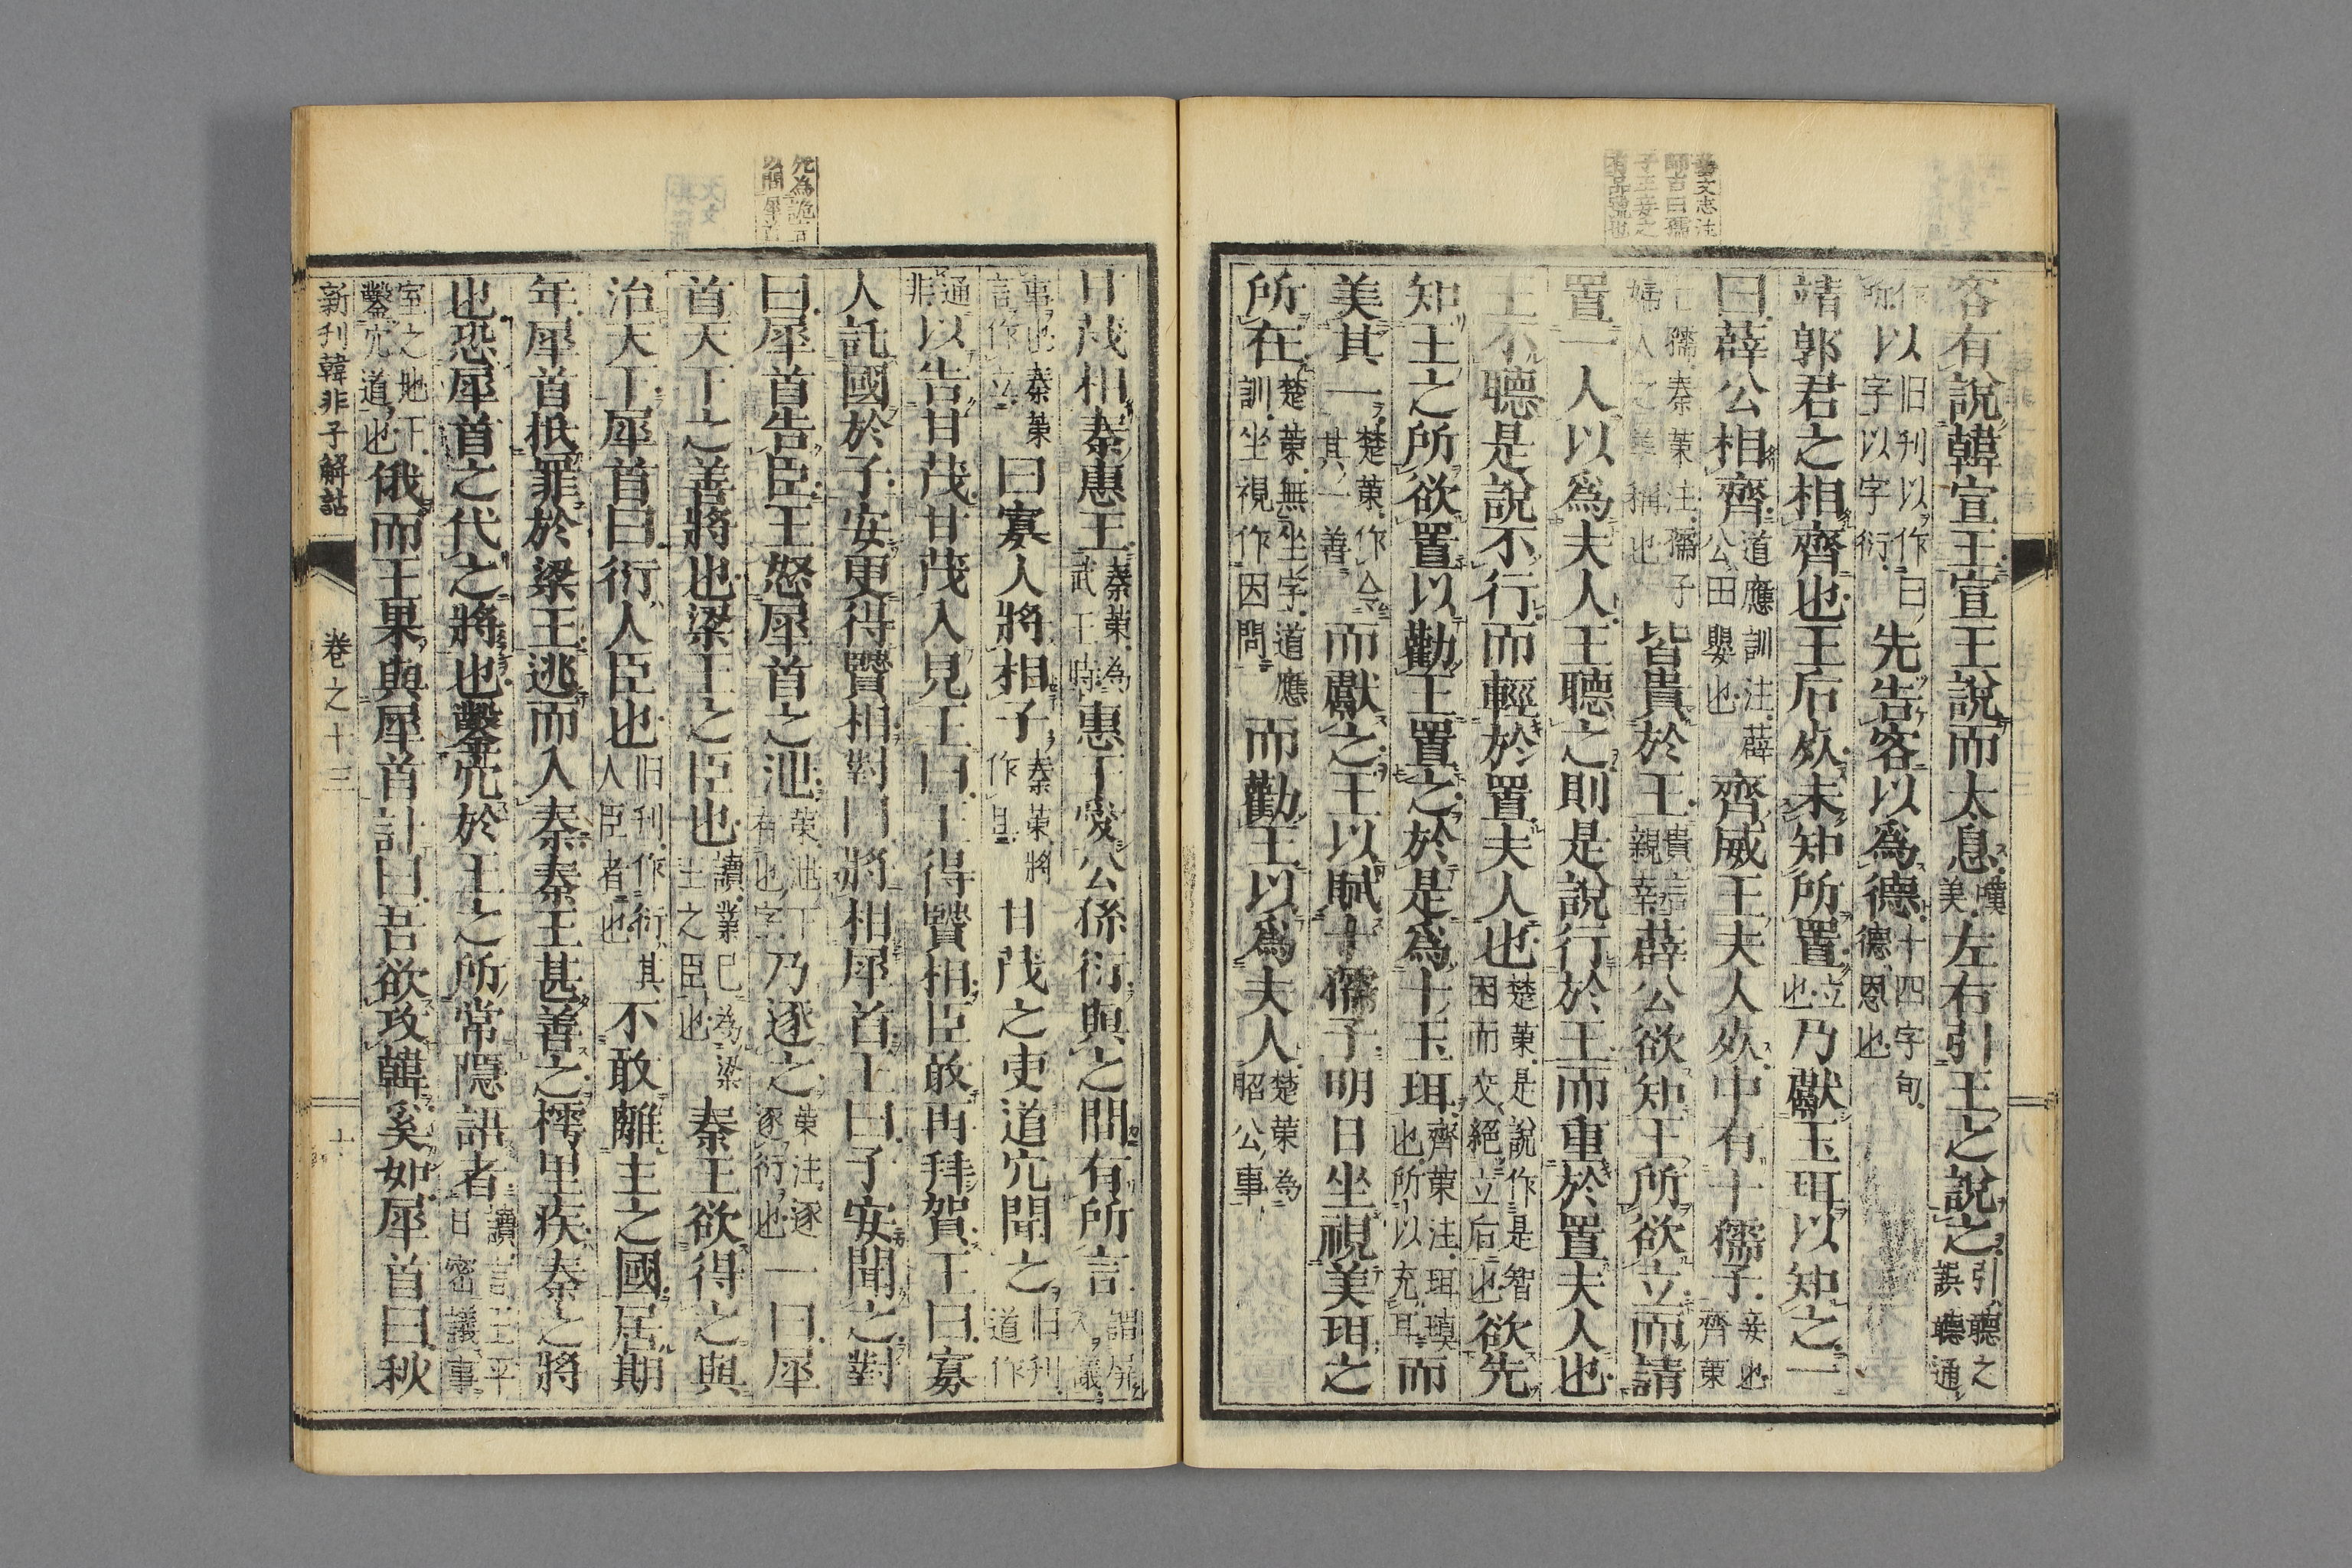 藝文志注
師古曰孺
子王妾之
有品號也
客有說韓宣王宣王說而太息嘆美左右引王之說之引聽之誤聽通
作所以旧刊以作曰字以字衍先告客以爲德十四字句德恩也
靖郭君之相齊也王后死未知所置立也乃獻玉珥以知之一
曰薛公相齊道應訓注薛公田嬰也齊威王夫人死中有十孺子妾也齊策
七孺秦策注孺子婦人之美稱也皆貴於王貴言親幸薛公欲知王所欲立而請
置一人以爲夫人王聽之則是說行於王而重於置夫人也
王不聽是說不行而輕於置夫人也楚策是說作是智困而交絕立后也欲先
知王之所欲置以勸王置之於是爲十玉珥齊策注珥瑱也所以充耳而
美其一楚策作令其一善而獻之王以賦十孺子明日坐視美珥之
所在楚策無坐字道應訓坐視作因問而勸王以爲夫人楚策為昭公事
甘茂相秦惠王秦策為武王時惠王愛公孫衍與之間有所言謂屏人議
事也秦策言作立曰寡人將相子秦策將作且甘茂之吏道穴聞之旧刊道作
通非以告甘茂甘茂入見王曰王得賢相臣敢再拜賀王曰寡
人託國於子安更得賢相對曰將相犀首王曰子安聞之對
曰犀首告臣王怒犀首之泄策泄下有也字乃逐之策注逐逐衍也一曰犀
首天下之善將也梁王之臣也讀業已為梁王之臣也秦王欲得之與
治天下犀首曰衍人臣也旧刊作衍其人臣者也不敢離主之國居期
年犀首抵罪於梁王逃而入秦秦王甚善之樗里疾秦之將
也恐犀首之代之將也鑿穴於王之所常隱語者讀言王平日密議事
室之地下鑿穴道也俄而王果與犀首計曰吾欲攻韓奚如犀首曰秋
新刊韓非子解詁　卷之十三